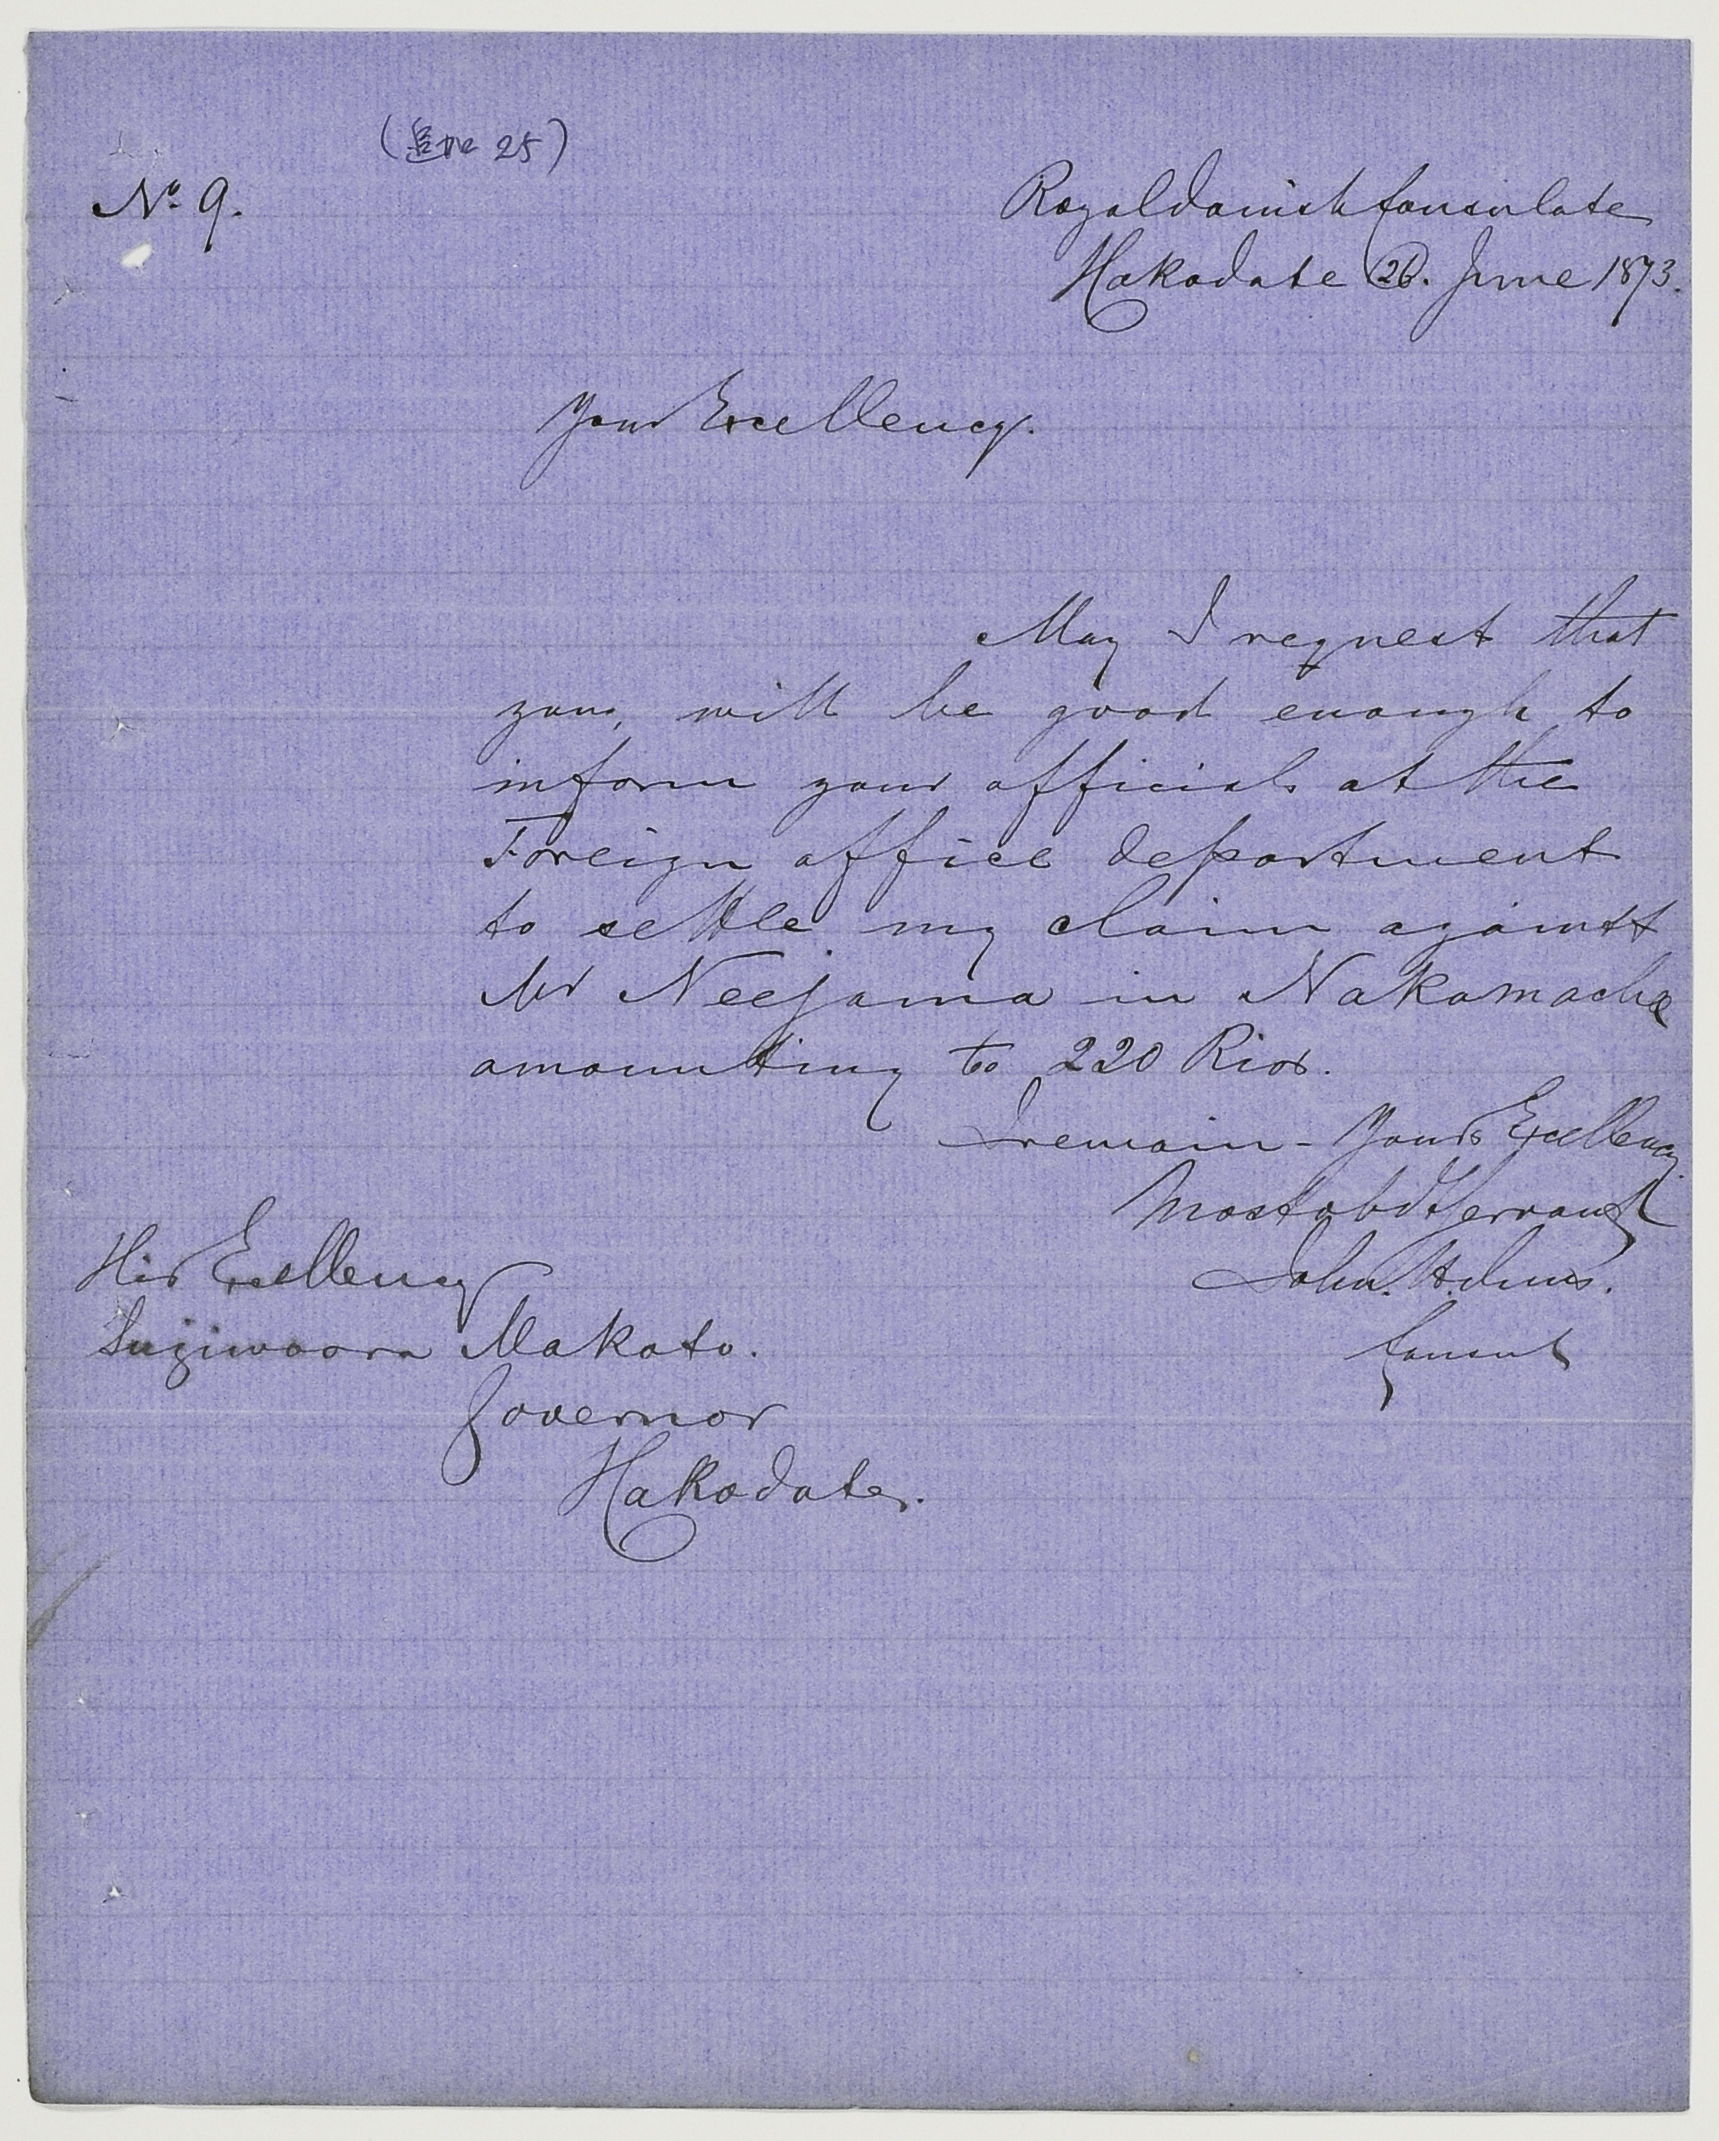 (追加 25)
No. 9.
Royal Danish Consulate
Hakodate 26. June 1873.
Your Excellency.
May I request that
you, will be good enough to
inform your officials at the
Foreign office department
to settle my claim against
Mr Neejama in Nakamacha
amounting to 220 Rios.
I remain - Your Excellency
Most obdt Servant
John. H. Duus.
Consul
His Excellency
Sugiwoora Makoto.
Governor
Hakodate.